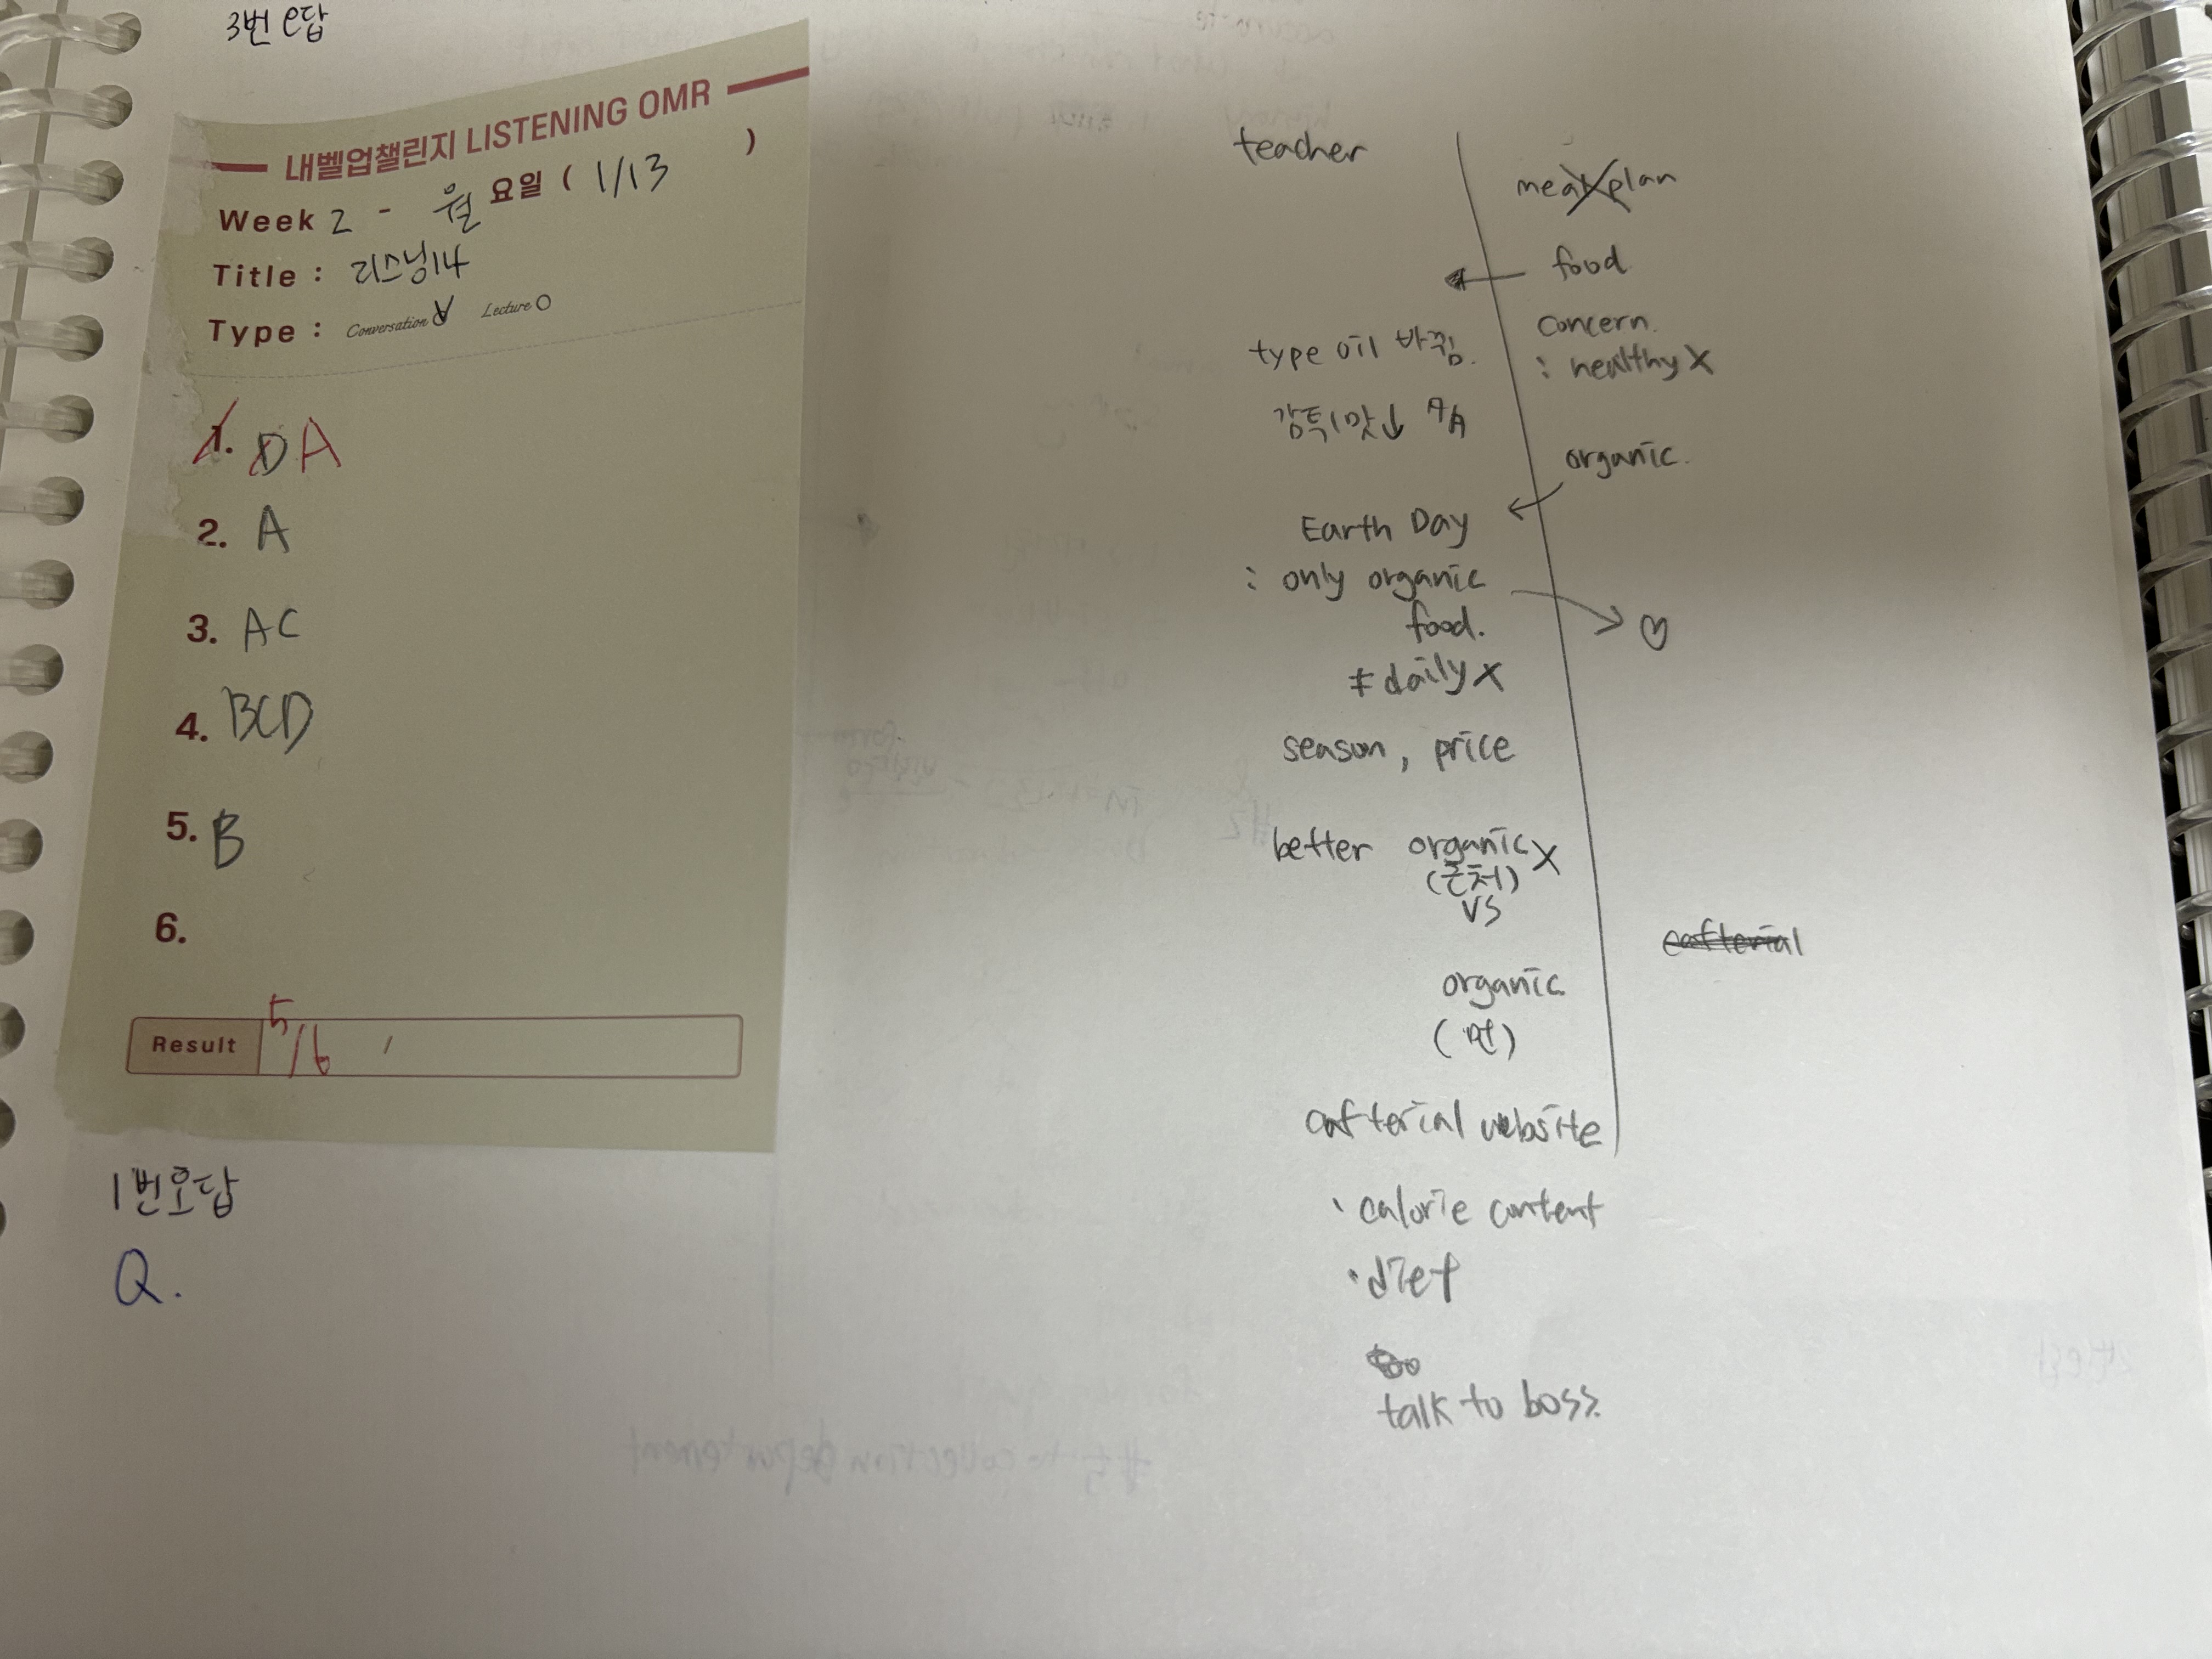 3번 e답
내벨업챌린지 LISTENING OMR
Week 2 - 월 요일 ( 1/13 )
Title : 리스닝14
Type : Conversation Lecture
1. D A
2. A
3. AC
4. BCD
5. B
6.
Result 5/6
1번오답
Q.
teacher
meal plan
food
concern.
: healthy X
type oil 바뀜.
감튀 맛↓
organic.
Earth Day
: only organic
food.
♡
≠ daily X
season, price
better organic X
(근처)
vs
organic
(먼)
cafterial
cafterial website
· calorie content
· diet
talk to boss.